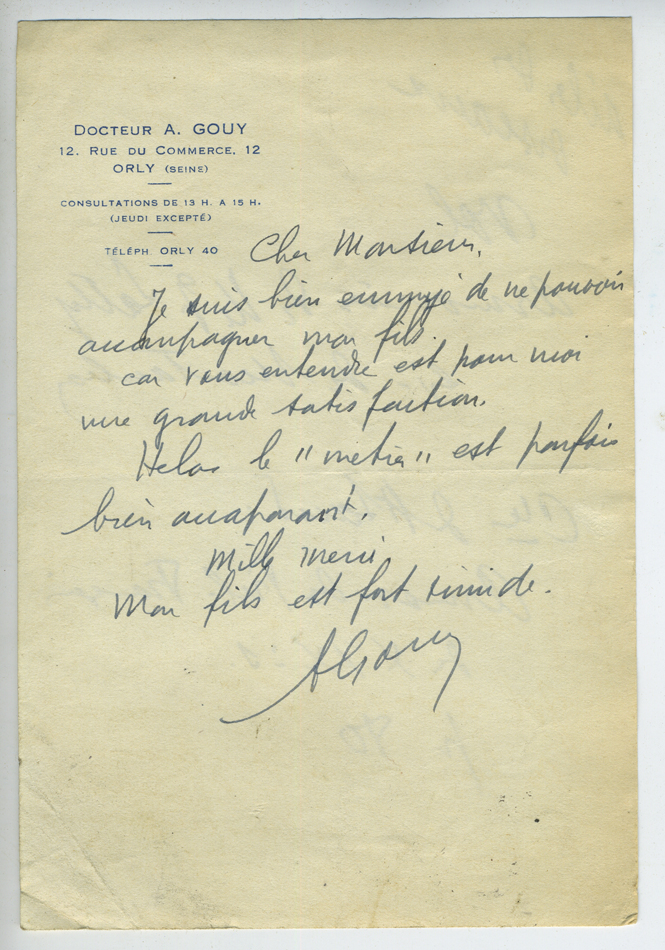 DOCTEUR A. GOUY
12. RUE DU COMMERCE. 12
ORLY (SEINE)
CONSULTATIONS DE 13 H. A 15 H.
(JEUDI EXCEPTÉ)
TÉLÉPH. ORLY 40
Cher Monsieur,
Je suis bien ennuyé de ne pouvoir
accompagner mon fils.
car vous entendre est pour moi
une grande satisfaction.
Helas le "métier" est parfois
bien accaparant.
Mille merci
Mon fils est fort timide.
AGouy